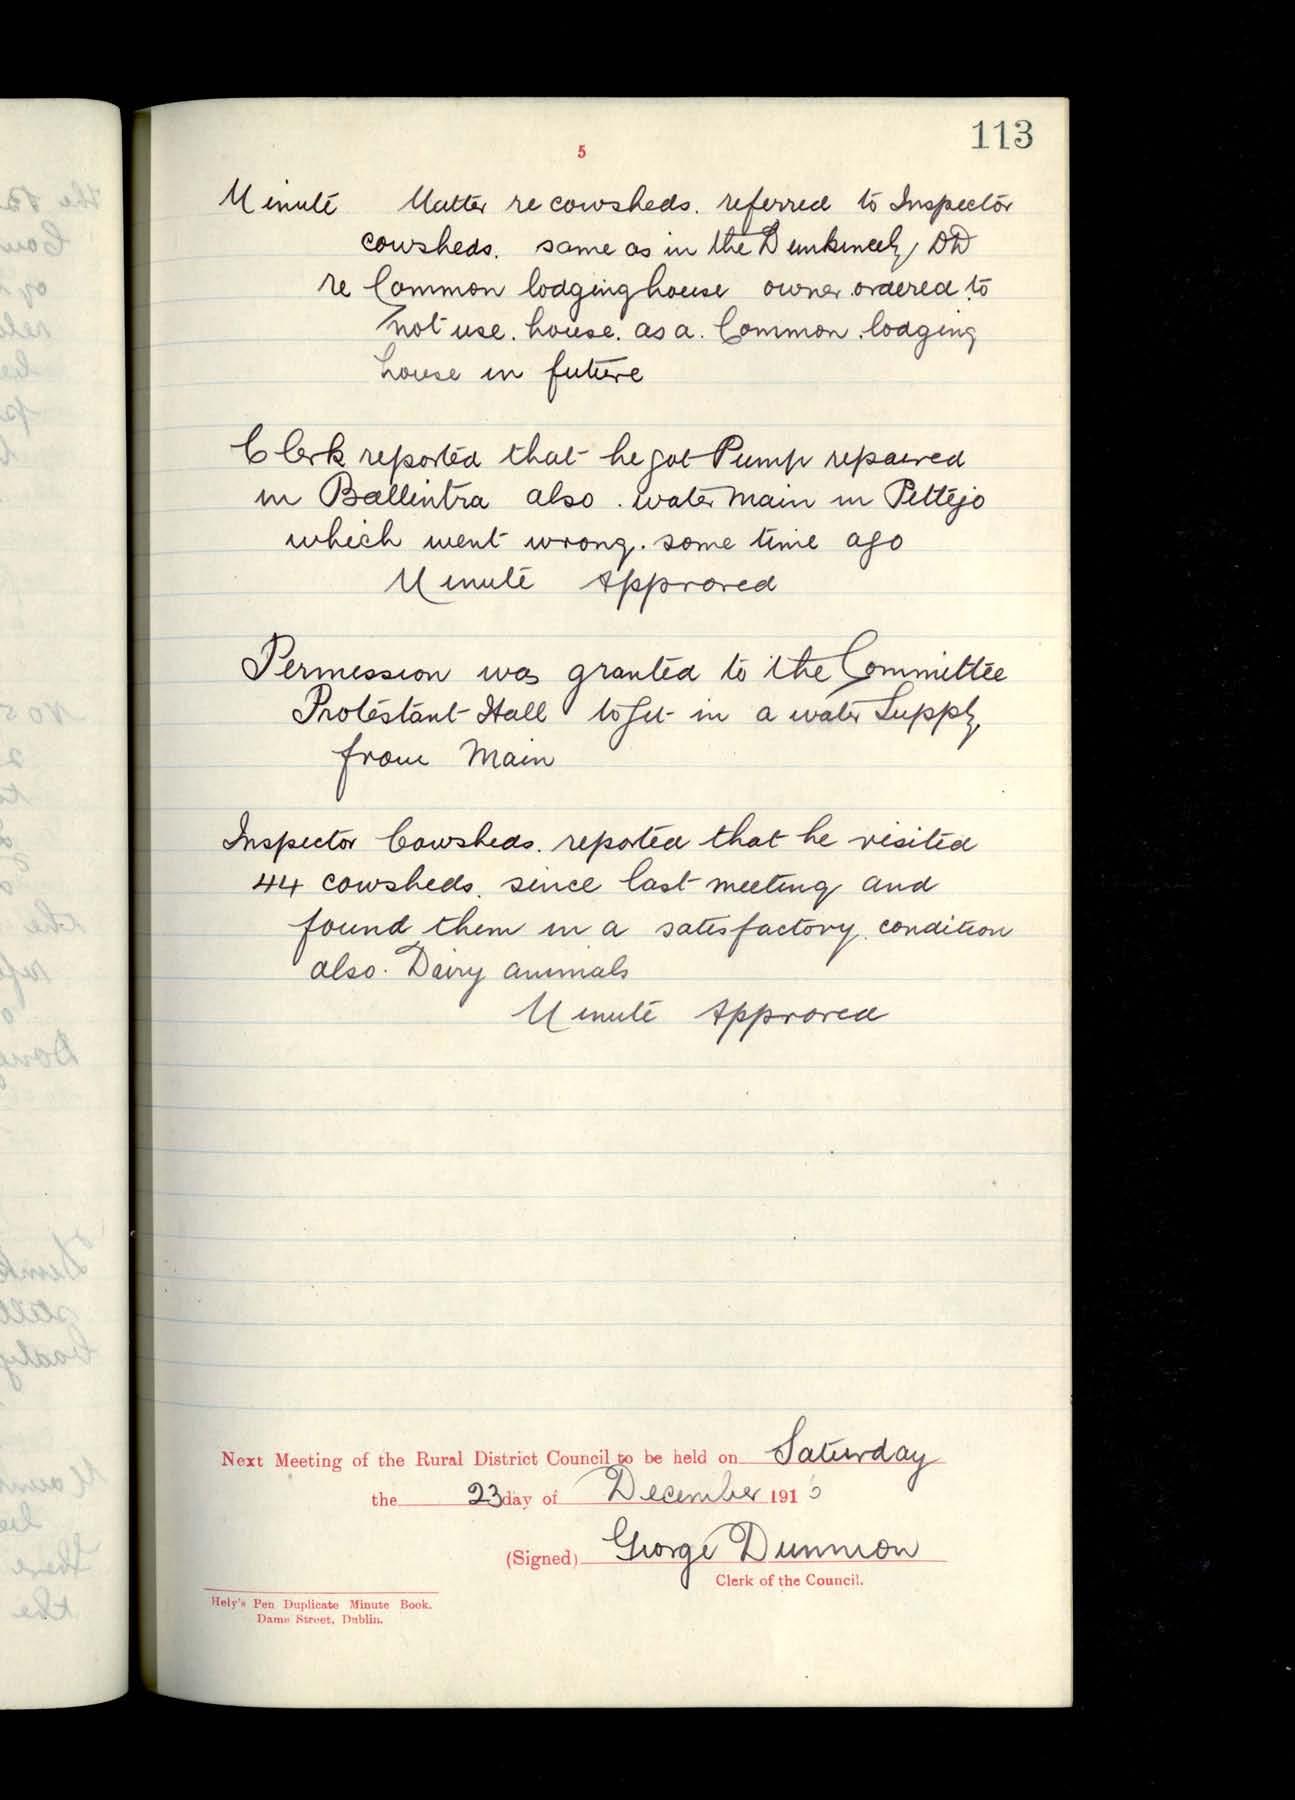 113
5
Minute Matter re cowsheds. referred to Inspector
cowsheds. same as in the Dunkineely DD
re Common lodging house owner ordered to
not use. house. as a. Common. lodging
house in future
Clerk reported that he got Pump repaired
in Ballintra also. water main in Pettigo
which went wrong. some time ago
Minute Approved
Permission was granted to the Committee
Protestant Hall to get in a water Supply
from Main
Inspector Cowsheds. reported that he visited
44 cowsheds. since last meeting and
found them in a satisfactory. condition
also. Dairy animals
Minute Approved
Next Meeting of the Rural District Council to be held on Saturday
the 23 day of December 191
(Signed) George Dunnion
Clerk of the Council.
Hely's Pen Duplicate Minute Book.
Dame Street, Dublin.